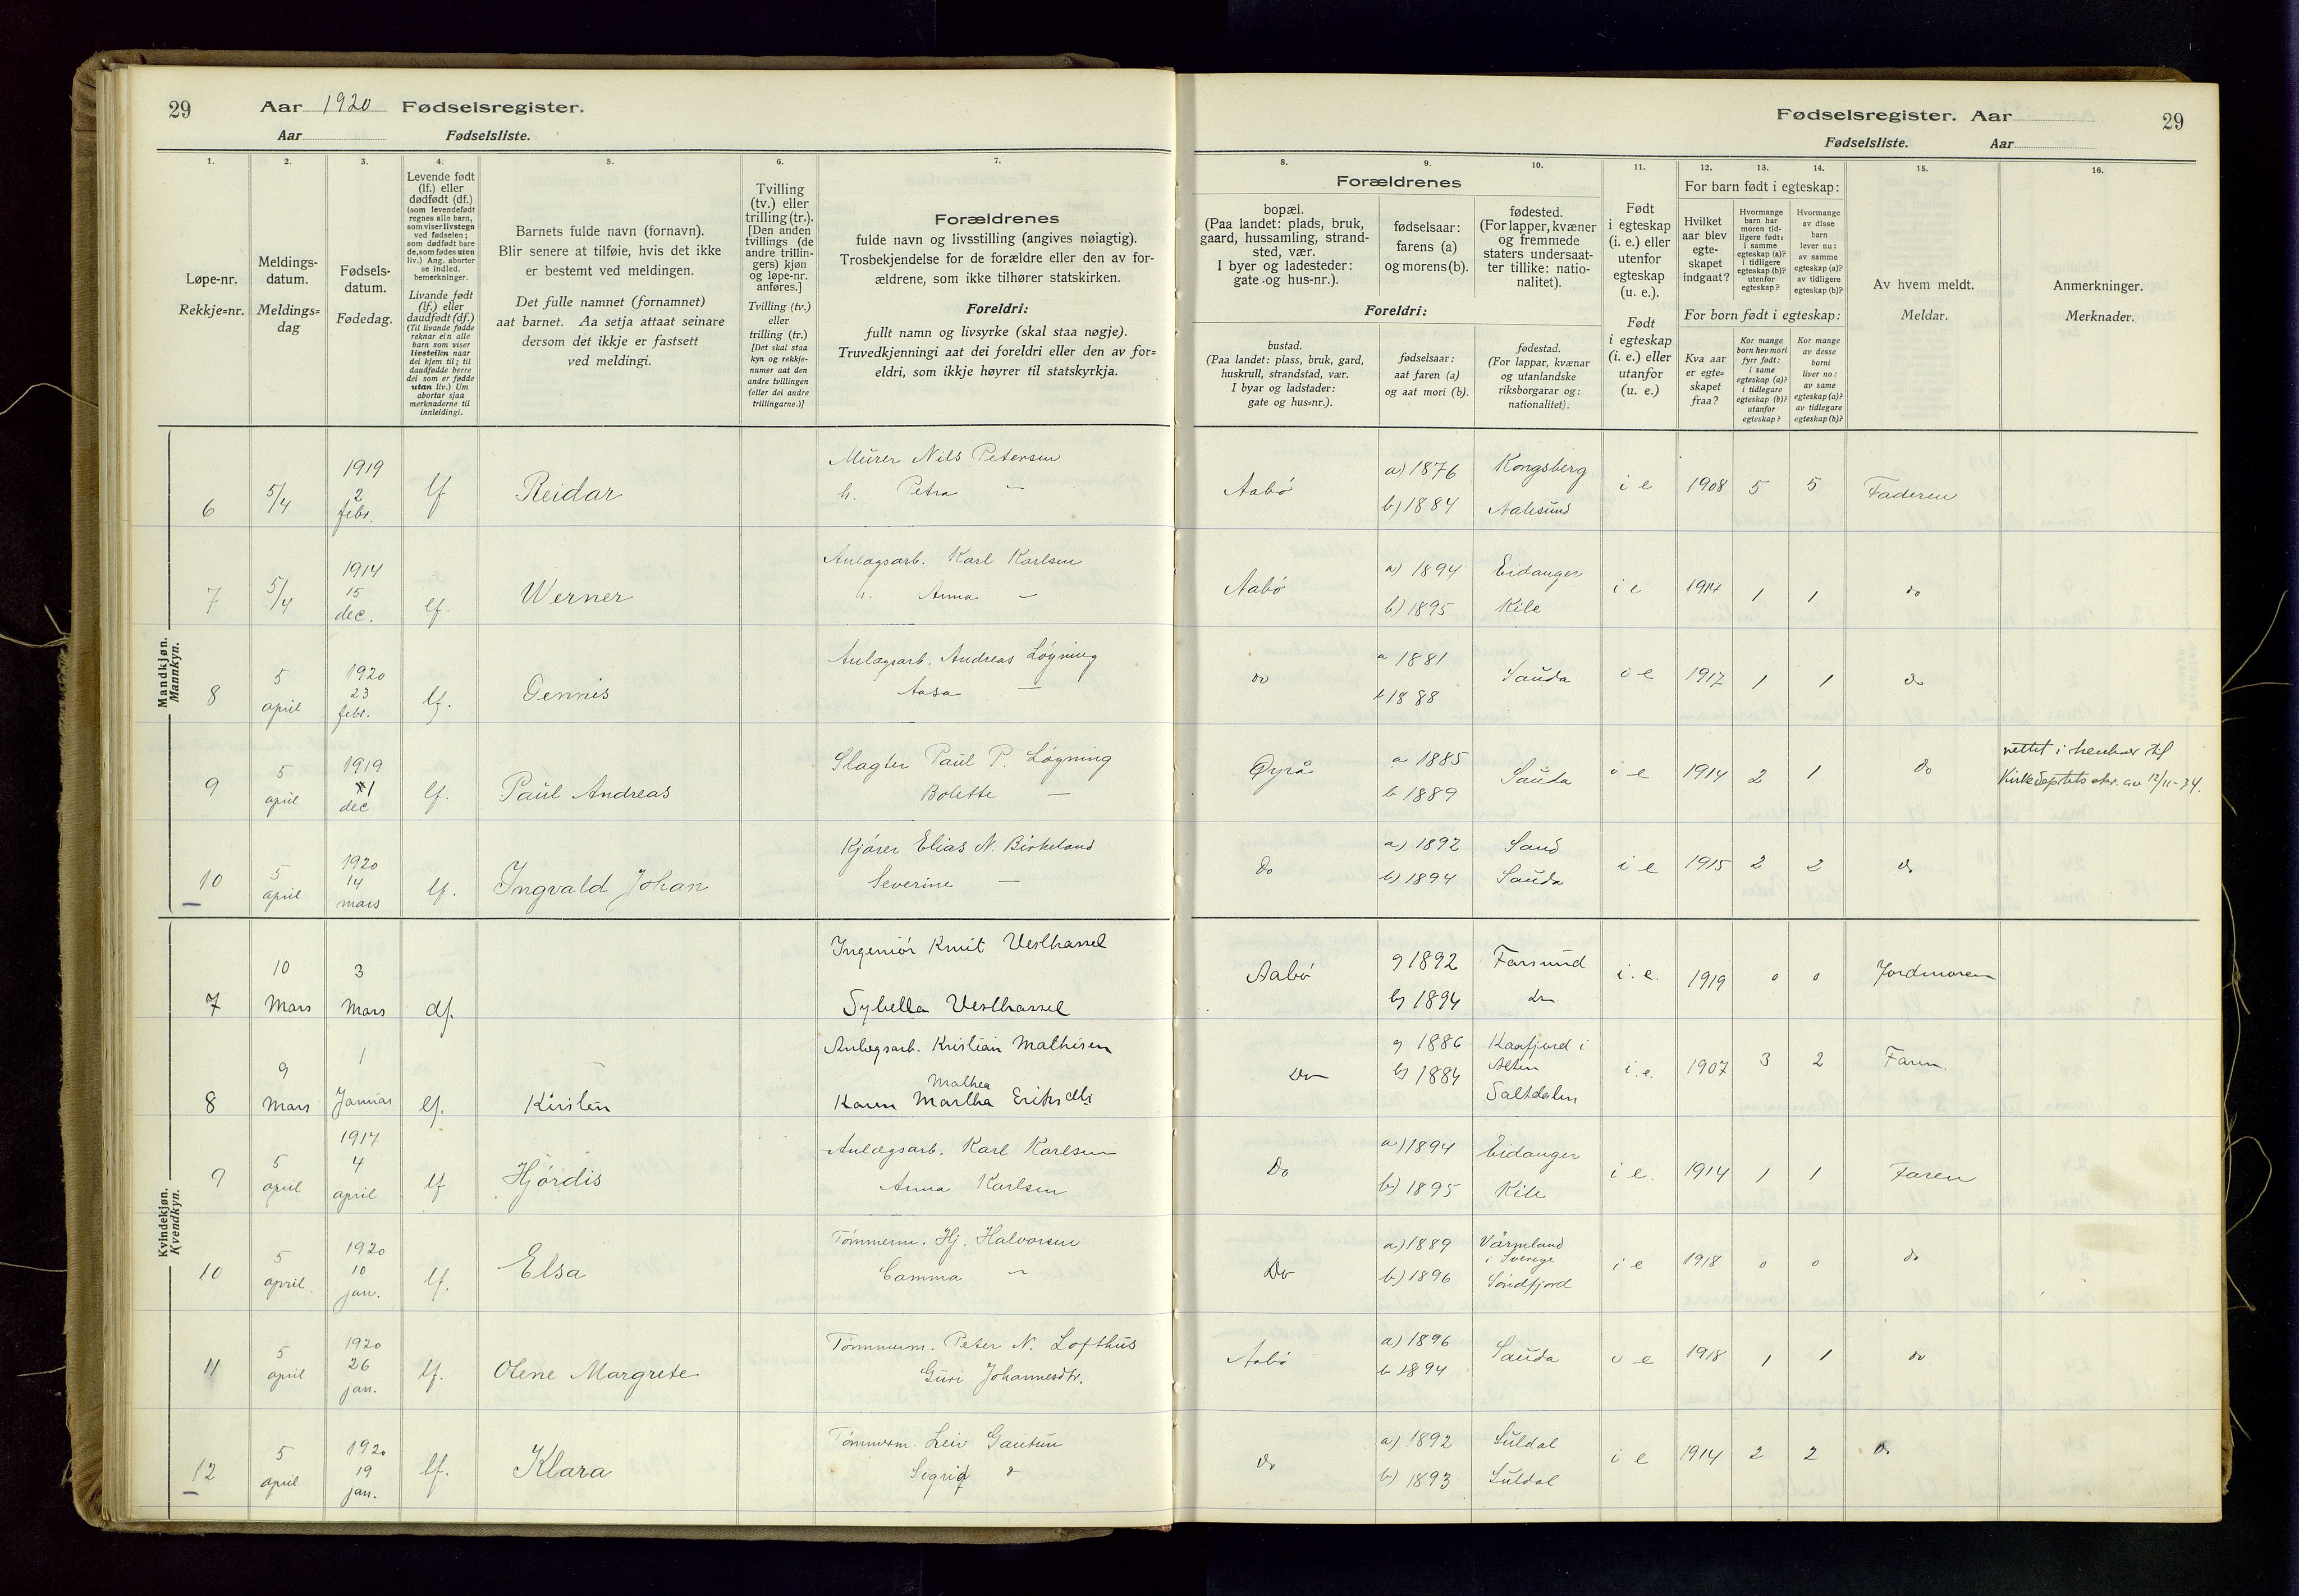 29
Aar 1920 Fødselsregister.
Aar Fødselsliste.
Fødselsregister. Aar
29
Fødselsliste. Aar
1.
Løpe-nr.
Rekkje=nr.
2.
Meldings-
datum.
Meldings=
dag
3.
Fødsels-
datum.
Fødedag.
4.
Levende født
(lf.) eller
dødfødt (df.)
(som levendefødt
regnes alle barn,
som viser livstegn
ved fødselen;
som dødfødt bare
de, som fødes uten
liv.) Ang. aborter
se indled.
bemerkninger.
Livande født
(lf.) eller
daudfødt (df.)
(Til livande fødde
reknar ein alle
barn som viser
livsteikn naar
dei kjem til; til
daudfødde berre
dei som er fødde
utan liv.) Um
abortar sjaa
merknaderne til
innleidingi.
5.
Barnets fulde navn (fornavn).
Blir senere at tilføie, hvis det ikke
er bestemt ved meldingen.
Det fulle namnet (fornamnet)
aat barnet. Aa setja attaat seinare
dersom det ikkje er fastsett
ved meldingi.
6.
Tvilling
(tv.) eller
trilling (tr.).
[Den anden
tvillings (de
andre trillin-
gers) kjøn
og løpe-nr.
anføres.]
Tvilling (tv.)
eller
trilling (tr.)
[Det skal staa
kyn og rekkje-
numer aat den
andre tvillingen
(eller dei andre
trillingarne.)]
7.
Forældrenes
fulde navn og livsstilling (angives nøiagtig).
Trosbekjendelse for de forældre eller den av for-
ældrene, som ikke tilhører statskirken.
Foreldri:
fullt namn og livsyrke (skal staa nøgje).
Truvedkjenningi aat dei foreldri eller den av for=
eldri, som ikkje høyrer til statskyrkja.
Forældrenes
8.
bopæl.
(Paa landet: plads, bruk,
gaard, hussamling, strand-
sted, vær.
I byer og ladesteder:
gate og hus-nr.).
9.
fødselsaar:
farens (a)
og morens (b).
10.
fødested.
(For lapper, kvæner
og fremmede
staters undersaat-
ter tillike: natio-
nalitet).
Foreldri:
bustad.
(Paa landet: plass, bruk, gard,
huskrull, strandstad, vær.
I byar og ladstader:
gate og hus=nr.).
fødselsaar:
aat faren (a)
og aat mori (b).
fødestad.
(For lappar, kvænar
og utanlandske
riksborgarar og:
nationalitet).
11.
Født
i egteskap
(i. e.) eller
utenfor
egteskap
(u. e.).
Født
i egteskap
(i. e.) eller
utanfor
(u. e.)
12. 13. 14.
For barn født i egteskap:
Hvilket
aar blev
egte-
skapet
indgaat?
Hvormange
barn har
moren tid-
ligere født:
i samme
egteskap (a)?
i tidligere
egteskap (b)?
utenfor
egteskap?
Hvormange
av disse
barn
lever nu:
av samme
egteskap (a)?
av tidligere
egteskap (b)?
For born født i egteskap:
Kva aar
er egte=
skapet
fraa?
Kor mange
born hev mori
fyrr født:
i same
egteskap (a)?
i tidlegare
egteskap (b)?
utanfor
egteskap?
Kor mange
av desse
borni
liver no:
av same
egteskap (a)?
av tidlegare
egteskap (b)?
15.
Av hvem meldt.
Meldar.
16.
Anmerkninger.
Merknader.
Mandkjøn.
Mannkyn.
6 5/4 1919 2 febr. lf Reidar Murer Nils Petersen h. Petra — Aabø a) 1876 b) 1884 Kongsberg Aalesund i e 1908 5 5 Faderen
7 5/4 1914 15 dec. lf. Werner Anlægsarb. Karl Karlsen h. Anna — Aabø a) 1894 b) 1895 Eidanger Kile i e 1914 1 1 do
8 5 april 1920 23 febr. lf. Gennis Anlægsarb. Andreas Løyning Aasa — do a 1881 b 1888 Sauda i e 1917 1 1 do
9 5 april 1919 1 dec lf. Paul Andreas Slagter Paul P. Løyning Bolette — Øyrå a 1885 b 1889 Sauda i e 1914 2 1 do rettet i henhold til Kirkedeptets skr. av 12/11-34.
10 5 april 1920 14 mars lf. Ingvald Johan Kjører Elias N. Birkeland Severine — Do a) 1892 b) 1894 Sand Sauda i e 1915 2 2 do
Kvindekjøn.
Kvendkyn.
7 10 Mars 3 Mars df. Ingeniør Knut Vesthassel Sybella Vesthassel Aabø a 1892 b) 1894 Farsund do i. e. 1919 0 0 Jordmoren
8 9 Mars 1 Januar lf. Kirsten Anlægsarb. Kristian Mathisen Karen Mathea Martha Eriksdtr Do a 1886 b) 1884 Kaafjord i Alten Saltdalen i. e. 1907 3 2 Faren.
9 5 april 1917 4 april lf Hjørdis Anlægsarb. Karl Karlsen Anna Karlsen Do a) 1894 b) 1895 Eidanger Kile i e. 1914 1 1 Faren
10 5 april. 1920 10 jan. lf. Elsa Tømmerm. Hj. Halvorsen Camma — Do a) 1889 b) 1896 Värmland i Sverige Søndfjord i e 1918 0 0 do
11 5 april 1920 26 jan. lf. Olene Margrete Tømmerm. Peter N. Lofthus Guri Johannesdtr. Aabø a) 1896 b 1894 Sauda u e 1918 1 1 do
12 5 april 1920 19 jan. lf. Klara Tømmerm. Leiv Gautun Segrid do a) 1892 b) 1893 Suldal Suldal i e 1914 2 2 do